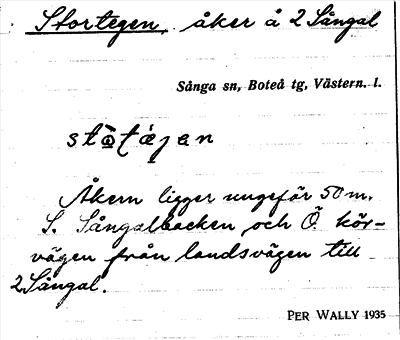 Stortegen, åker å 2 Sångal
Sånga sn, Boteå tg, Västern. l.
Åkern ligger ungefär 50 m.
S. Sångalbacken och Ö. kör-
vägen från landsvägen till
2 Sångal.
PER WALLY 1935